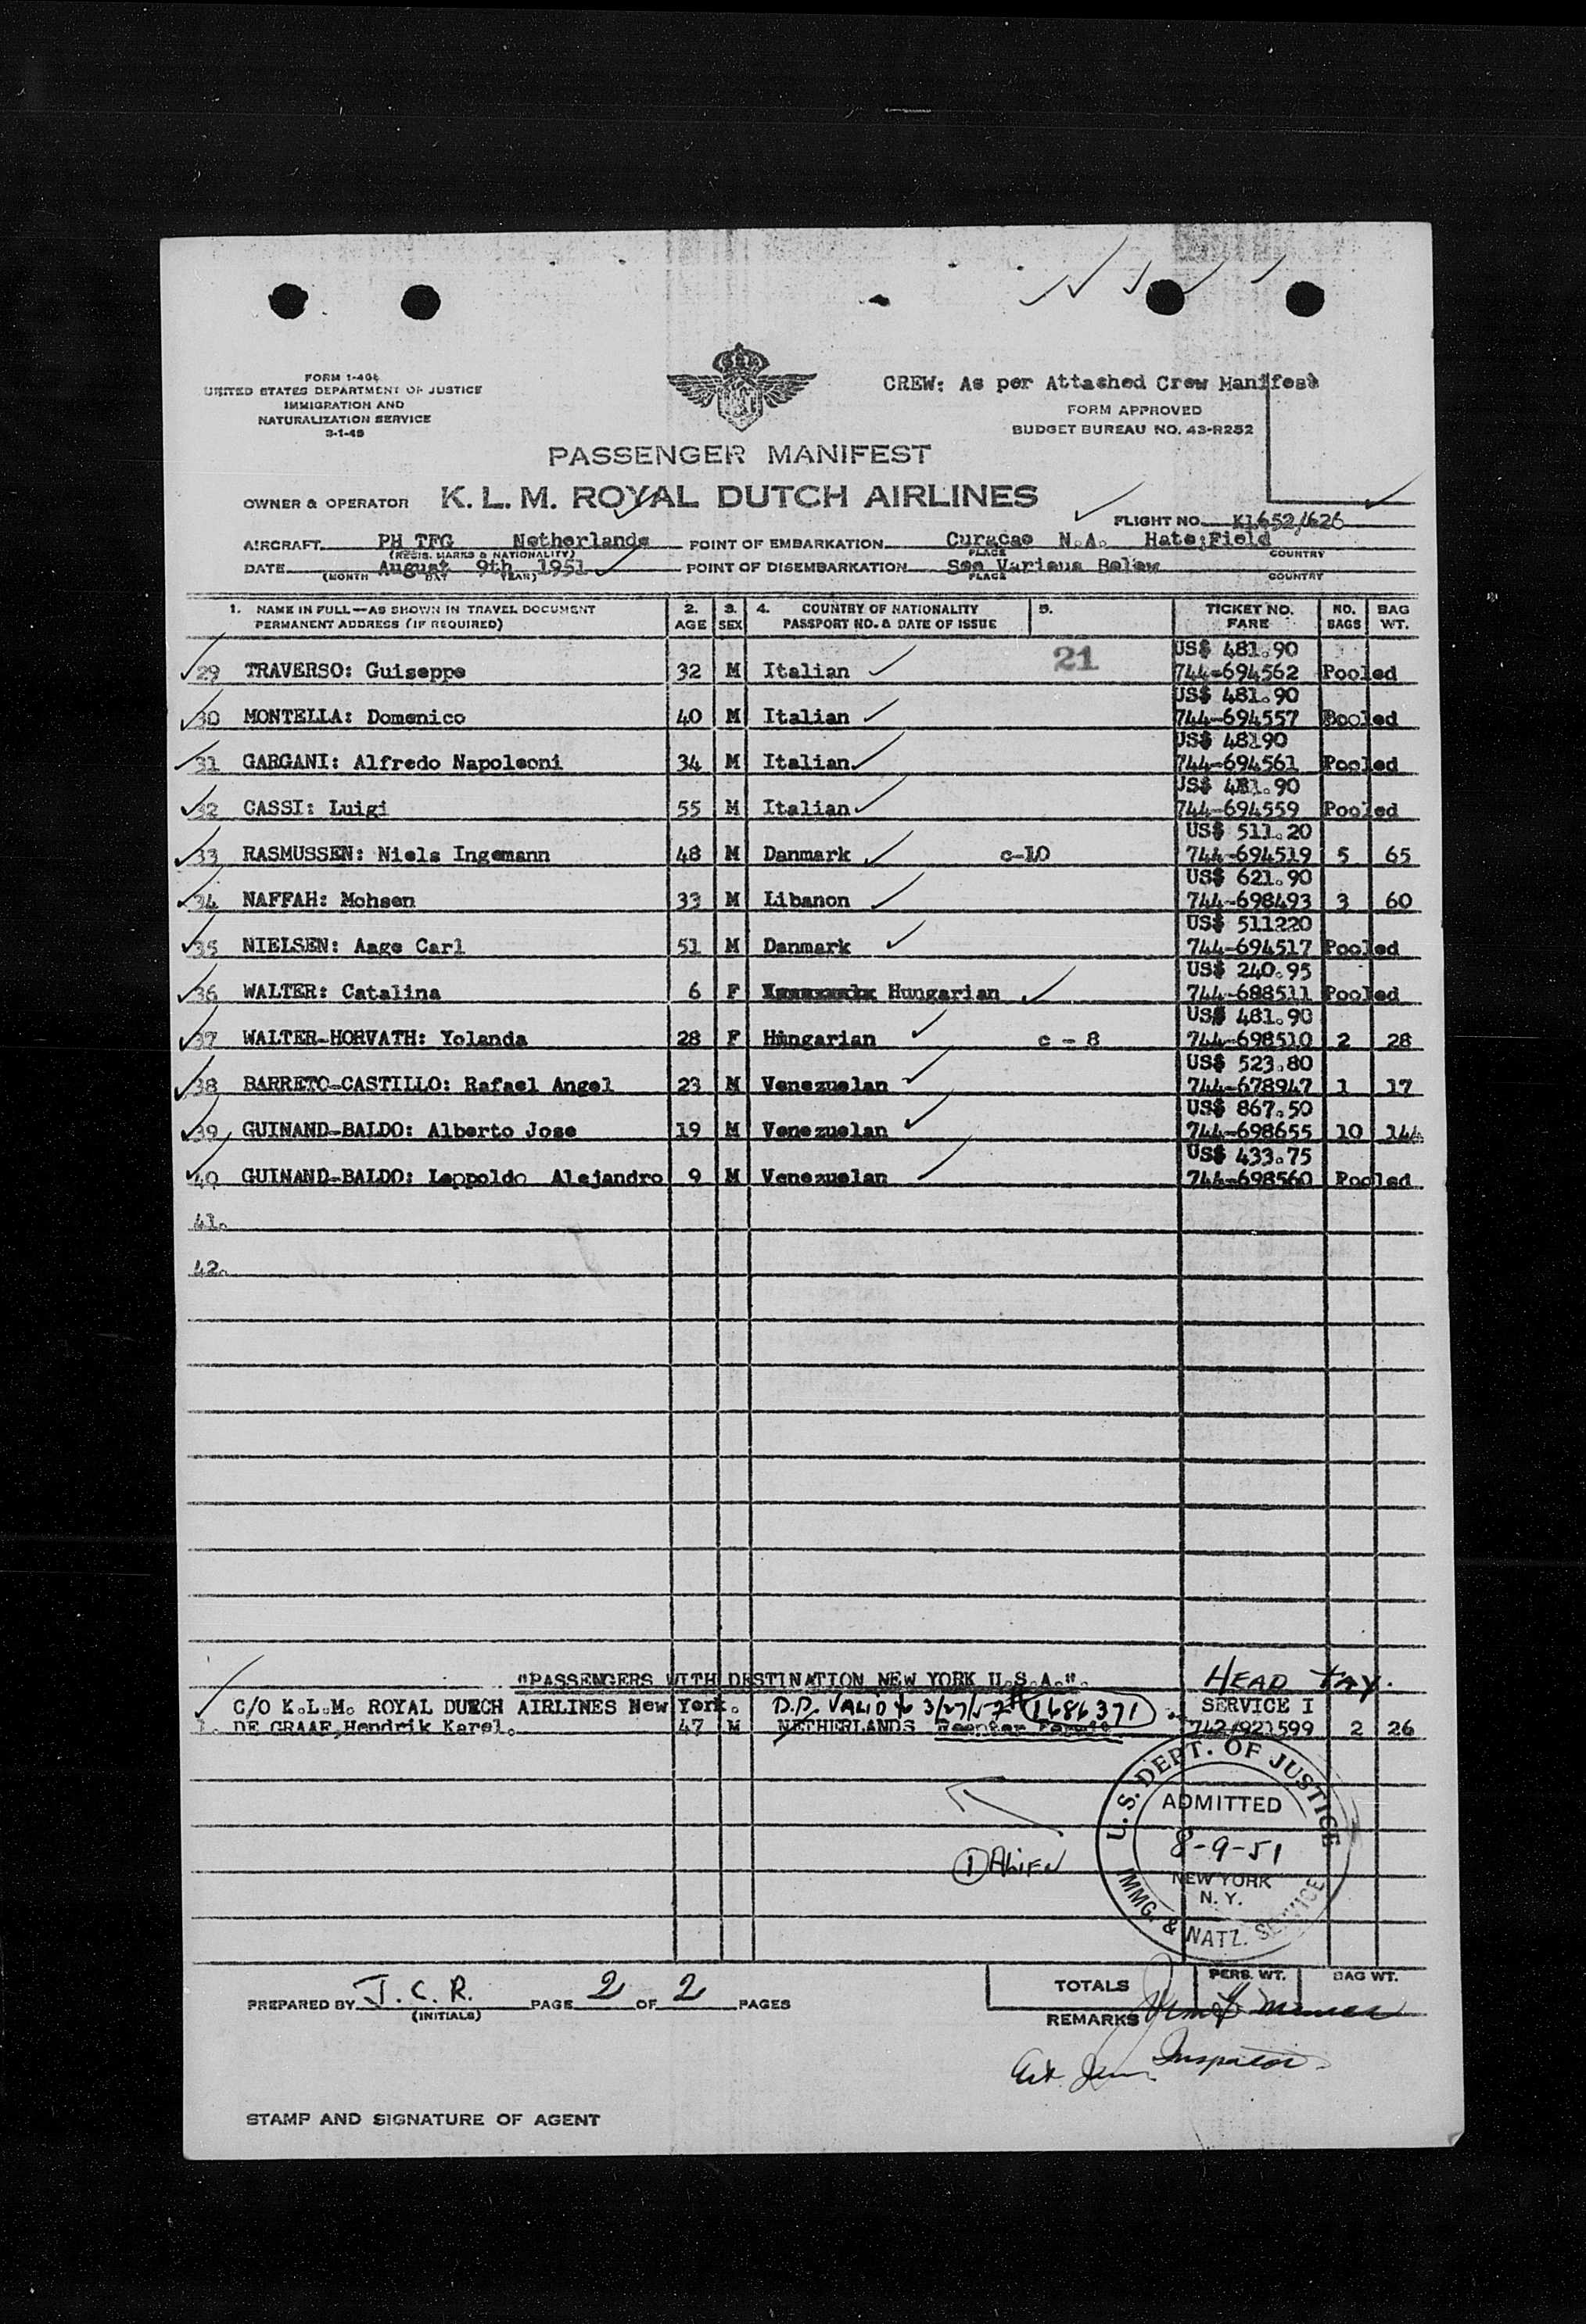 CREW: As per Attached Crew Manifest
FORM I-404
UNITED STATES DEPARTMENT OF JUSTICE
IMMIGRATION AND
NATURALIZATION SERVICE
3-1-49
FORM APPROVED
BUDGET BUREAU NO. 43-R252
PASSENGER MANIFEST
OWNER & OPERATOR K. L. M. ROYAL DUTCH AIRLINES
FLIGHT NO. KL652/626
AIRCRAFT PH TFG Netherlands POINT OF EMBARKATION Curacao N.A. Hato;Field
(REGIS. MARKS & NATIONALITY) PLACE COUNTRY
DATE August 9th 1951 POINT OF DISEMBARKATION See Various Below
(MONTH DAY YEAR) PLACE COUNTRY
1. NAME IN FULL—AS SHOWN IN TRAVEL DOCUMENT 2. 3. 4. COUNTRY OF NATIONALITY 5. TICKET NO. NO. BAG
PERMANENT ADDRESS (IF REQUIRED) AGE SEX PASSPORT NO. & DATE OF ISSUE FARE BAGS WT.
21 US$ 481.90
29 TRAVERSO: Guiseppe 32 M Italian 744-694562 Pooled
US$ 481.90
30 MONTELLA: Domenico 40 M Italian 744-694557 Pooled
US$ 48190
31 GARGANI: Alfredo Napoleoni 34 M Italian 744-694561 Pooled
US$ 481.90
32 CASSI: Luigi 55 M Italian 744-694559 Pooled
US$ 511.20
33 RASMUSSEN: Niels Ingemann 48 M Danmark c-10 744-694519 5 65
US$ 621.90
34 NAFFAH: Mohsen 33 M Libanon 744-698493 3 60
US$ 511220
35 NIELSEN: Aage Carl 51 M Danmark 744-694517 Pooled
US$ 240.95
36 WALTER: Catalina 6 F Hungarian 744-688511 Pooled
US$ 481.90
37 WALTER-HORVATH: Yolanda 28 F Hungarian c - 8 744-698510 2 28
US$ 523.80
38 BARRETO-CASTILLO: Rafael Angel 23 M Venezuelan 744-678947 1 17
US$ 867.50
39 GUINAND-BALDO: Alberto Jose 19 M Venezuelan 744-698655 10 144
US$ 433.75
40 GUINAND-BALDO: Leppoldo Alejandro 9 M Venezuelan 744-698560 Pooled
41.
42.
"PASSENGERS WITH DESTINATION NEW YORK U.S.A.". HEAD TAX.
C/O K.L.M. ROYAL DUTCH AIRLINES New York. VALID to 3/27/52 # 1686371 SERVICE I
1. DE GRAAF, Hendrik Karel. 47 M NETHERLANDS Reenter Permit 742/921599 2 26
U. S. DEPT. OF JUSTICE
ADMITTED
8-9-51
NEW YORK
N. Y.
IMMG. & NATZ. SERVICE
1 ALIEN
PREPARED BY J. C. R. PAGE 2 OF 2 PAGES
(INITIALS)
TOTALS PERS. WT. BAG WT.
REMARKS
Inspector
STAMP AND SIGNATURE OF AGENT